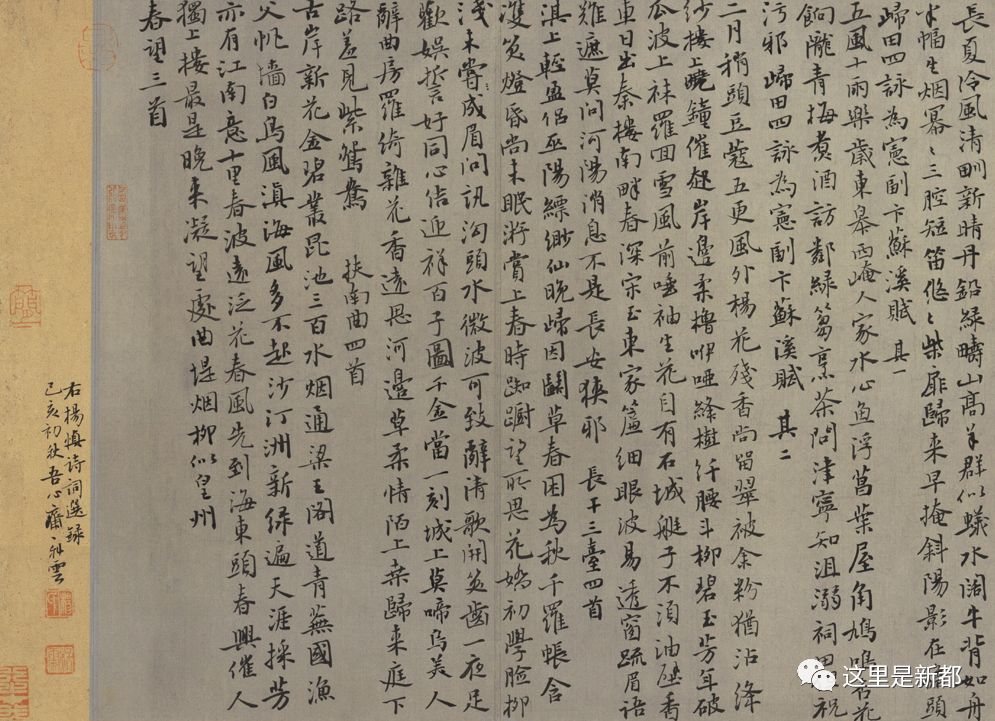 長夏泠風清畎新晴丹鉛緑疇山髙羊群似蟻水闊牛背如舟
半幅生烟冪〻三腔短笛悠〻柴扉歸来早掩斜陽影在頭
歸田四詠為憲副卞蘇溪賦 其一
五風十雨樂歲東皋西崦人家水心魚浮菖葉屋角鳩鳴杏花
餉隴青梅煑酒訪鄰緑蒭烹茶問津寧知沮溺祠田祝
污邪 歸田四詠為憲副卞蘇溪賦 其二
二月稍頭豆蔻五更風外楊花殘香尚留翠被余粉猶沾絳
紗樓上曉鐘催起岸邊柔櫓咿啞絳樹纤腰斗柳碧玉芳年破
瓜波上袜羅回雪風前唾袖生花自有石城艇子不須油壁香
車日出秦樓南畔春深宋玉東家簾细眼波易透窗疏眉語
難遮莫問河陽消息不是長安狹邪 長干三臺四首
淇上輕盈侶巫陽縹緲仙晚歸因鬭草春困為秋千羅帳含
雙笑燈昏尚未眠游賞上春時踟蹰望所思花嬌初學臉柳
淺未嘗成眉問訊沟頭水微波可致辭清歌開笑齒一夜足
歡娛誓好同心结迎祥百子圖千金當一刻城上莫啼乌美人
辭曲房羅绮雜花香遠思河邊草柔情陌上桑歸来庭下
路羞見紫鴛鴦 扶南曲四首
古岸新花金碧叢昆池三百水烟通梁王阁道青蕪國漁
父帆檣白鳥風滇海風多不起沙汀洲新绿遍天涯採芳
亦有江南意十里春波遠泛花春風先到海東頭春興催人
獨上樓最是晚来凝望處曲堤烟柳似皇州
春望三首
右楊慎诗詞選録
己亥初秋吾心齋雲
这里是新都